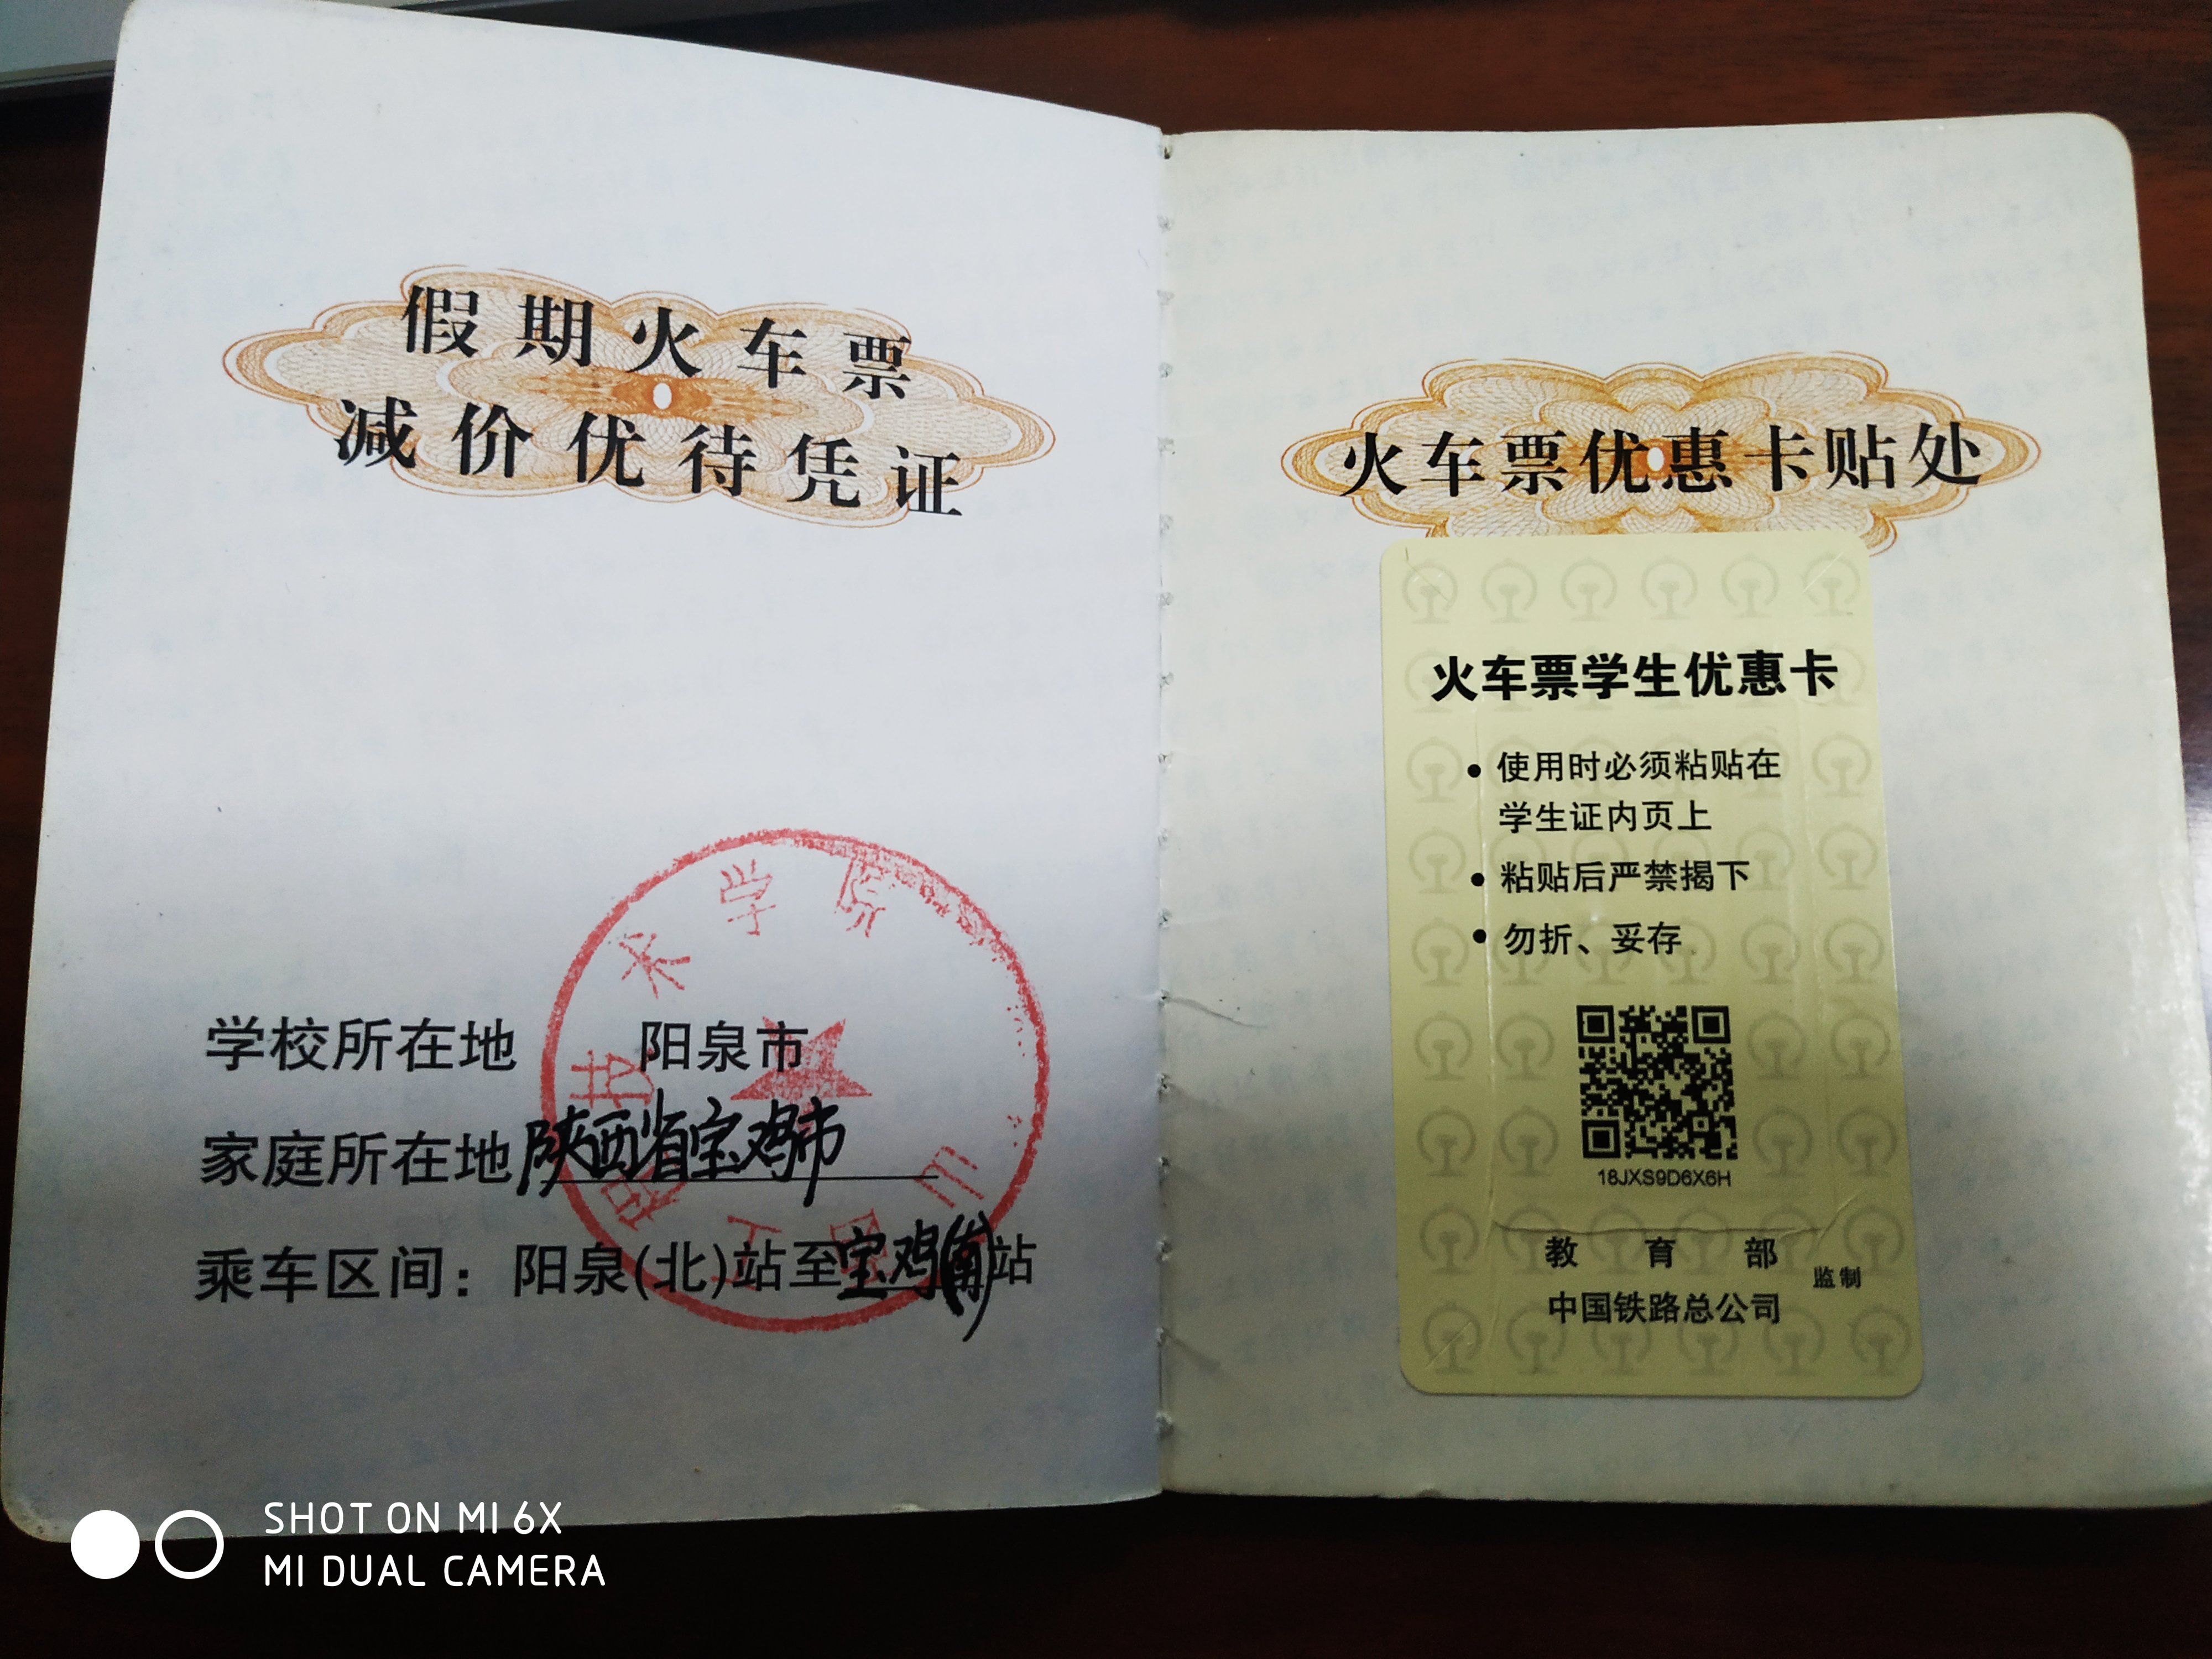 假期火车票
减价优待凭证
学校所在地 阳泉市
家庭所在地 陕西省宝鸡市
乘车区间：阳泉(北)站至宝鸡(南)站
技术学院
火车票优惠卡贴处
火车票学生优惠卡
• 使用时必须粘贴在
学生证内页上
• 粘贴后严禁揭下
• 勿折、妥存
18JXS9D6X6H
教育部
中国铁路总公司
监制
SHOT ON MI 6X
MI DUAL CAMERA